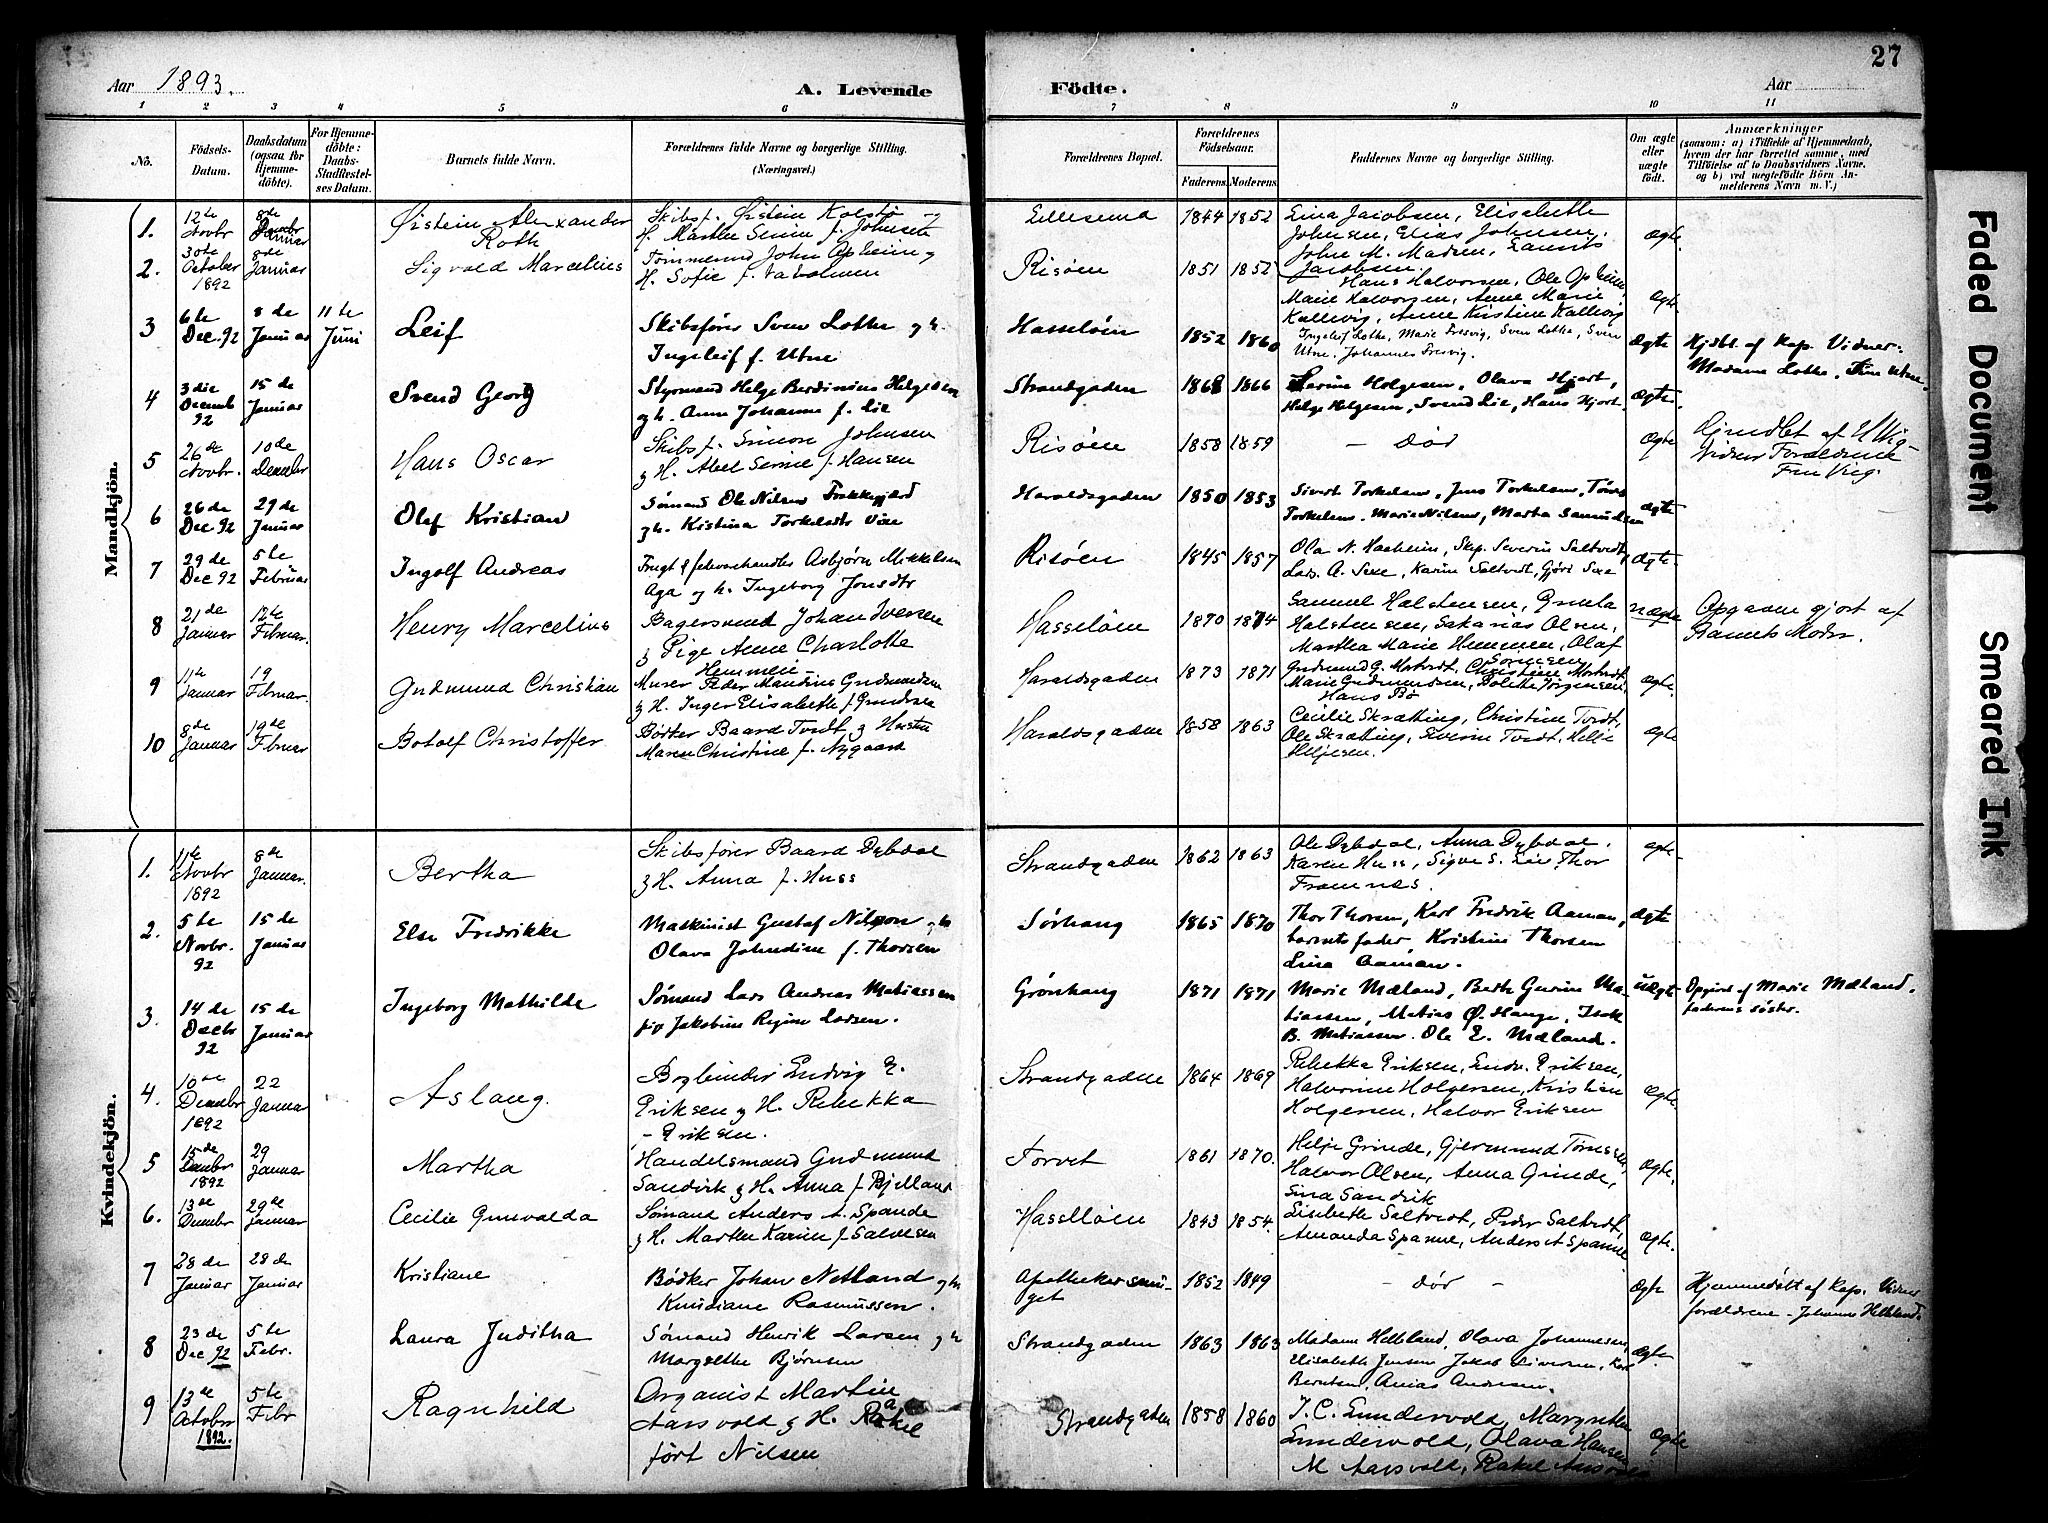 27
Aar 1893.
A. Levende
Födte.
Aar
1 2 3 4 5 6 7 8 9 10 11
Nö.
Födsels-
Datum.
Daabsdatum
(ogsaa for
Hjemme-
döbte).
For Hjemme-
döbte:
Daabs-
Stadfæstel-
ses Datum.
Barnets fulde Navn.
Forældrenes fulde Navne og borgerlige Stilling.
(Næringsvei.)
Forældrenes Bopæl.
Forældrenes
Födselsaar.
Faderens. Moderens.
Faddernes Navne og borgerlige Stilling.
Om ægte
eller
uægte
födt.
Anmærkninger
(saasom: a) i Tilfælde af Hjemmedaab,
hvem der har forrettet samme, med
Tilföielse af to Daabsvidners Navne,
og b) ved uægtefödte Börn An-
melderens Navn m. V.)
Mandkjön.
1. 12te Novbr 8de Januar
Øistein Alexander
Roth
Skibsf. Øistein Kolstø og
H. Marthe Serine f. Johnsen
Lillesund 1844 1852
Lina Jacobsen, Elisabethe
Johnsen, Elias Johnsen,
John M. Madsen, Laurits
Jacobsen
Ægte.
2. 30te October 1892 8de Januar
Sigvald Marcelius
Tømmermd John Opheim og
H. Sofie f.
Risøen 1851 1852
Hans Halvorsen, Ole Opheim,
Marie Halvorsen, Anne Marie
Kallevig, Anne Kristine Kallevig
Ægte.
3 6te Dec. 92 8de Januar 11te Juni
Leif
Skibsfører Sven Lothe og h.
Ingeleif f. Utne
Hasseløen 1852 1860
Ingeleif Lothe, Marie Fresvig, Sven Lothe, Sven
Utne, Johannes Fresvig.
Ægte
Hjdbt. af Kap. Vidner:
Madame Lothe, Utne.
4 3die Decemb 92 15de Januar
Svend Georg
Styrmand Helge Berdinius Helgesen
og h. Anna Johanne f. Lie
Strandgaden 1868 1866
Karine Holgesen, Olava Hjort,
Helge Helgesen, Svend Lie, Hans Hjort.
Ægte.
5 26de Novbr. 10de Decmbr
Hans Oscar
Skibsf. Simon Johnsen
og H. Abel Serine f. Hansen
Risøen 1858 1859
- Dør
Ægte
Hjmdbt af
Vidner Forældrene
6 26de Dec 92 29de Januar
Olaf Kristian
Sømand Ole Nilsen
og h. Kistina Torkelsdtr
Haraldsgaden 1850 1853
Sivert Torkelsen, Jens Torkelsen,
Torkelsen, Marie Nilsen, Marta Samuelsen
Ægte
7 29de Dec 92 5te Februar
Ingolf Andreas
Asbjørn Mikkelsen
Aga og h. Ingeborg Jonsdtr
Risøen 1845 1857
Ola N. Severin Saltvedt,
Lars A. Sexe, Karine Saltvedt, Gjøri Sexe
Ægte.
8 21de Januar 12te Februar.
Henry Marcelius
Bagersvend Johan Iversen
& Pige Anne Charlotte
Hemmen
Hasseløen 1870 1874
Samuel Halstensen,
Halstensen, Sakarias Olsen,
Martha Marie Hemmen, Olaf
Sørensen
Uægte
Opgaven gjort af
Barnets Moder.
9 11te Januar 19 Februar
Gudmund Christian
Murer Peder Maudius Gudmundsen
& H. Inger Elisabeth f. Gundersen
Haraldsgaden 1873 1871
Gudmund G. Mortvedt, Christine Mortvedt,
Marie Gudmundsen, Bolette Jørgensen,
Hans Bø
Ægte.
10 8de Januar 19de Februar
Botolf Christoffer
Bødker Baard Tvedt & Hustru
Maren Christine f. Nygaard
Haraldsgaden 1858 1863
Cecilie Skrætting, Christine Tvedt,
Ole Skrætting, Severin Tvedt, Helje
Heljesen.
Ægte
Kvindekjön.
1. 11te Novbr 1892 8de Januar.
Bertha
Skibsfører Baard Dybdal
& H. Anna f. Huss
Strandgaden 1862 1863
Ole Dybdal, Anna Dybdal,
Karen Huss, Sigve S. Lie, Thor
Framnes.
Ægte
2. 5te Novbr. 92 15de Januar
Else Fredrikke
Maskinist Gustaf Nilsson og h
Olava Johndine f. Thorsen
Sørhaug 1865 1870
Thor Thorsen, Karl Fredrik Aaman,
barnets fader, Kristine Thorsen
Lina Aaman.
Ægte
3. 14de Decbr 92 15de Januar
Ingeborg Mathilde
Sømand Lars Andreas Matiassen
pig Jakobine Regine Larsen.
Grønhaug 1871 1871
Marie Mæland, Berthe Gurine Ma-
tiassen, Matias Ø. Hauge, Isak
B. Matiassen. Ole E. Mæland.
Uægte
Opgivet af Marie Mæland,
faderens søster.
4. 10de Decembr 1892 22 Januar
Aslaug.
Bogbinder Ludvig E.
Eriksen & H. Rebekka
- Eriksen.
Strandgaden 1864 1869
Rebekka Eriksen, Endre Eriksen,
Halvorine Holgersen, Kristian
Holgersen, Halvor Eriksen
Ægte.
5 15de Decmbr 1892 29 Januar
Martha
Handelsmand Gudmund
Sandvik & H. Anna f. Bjelland
Torvet 1861 1870.
Helje Grinde, Gjermund Tønnesen,
Halvor Olsen, Anna Grinde,
Sina Sandvik
Ægte.
6. 13de Decmbr 29de Januar
Cecilie Gunvalda
Sømand Anders A. Spanne
& H. Marthe Karine f. Salvesen
Hasseløen 1843 1854.
Lisabeth Saltvedt, Peder Saltvedt,
Amanda Spanne, Anders A Spanne
Ægte.
7 28de Januar 28de Januar
Kristiane
Bødker Johan Netland og h
Knudiane Rasmussen.
Apothekersmu-
get
1852 1849
- Dør -
Ægte
Hjemmedøbt af Kap. Vidner
forældrene - Johanne Helleland.
8 23de Dec 92 5te Febr.
Laura Juditha
Sømand Henrik Larsen og h
Margrethe Bjørnsen
Strandgaden 1863 1863
Madame Helleland, Olava Johannesen,
Elisabeth Jensen, Jakob Siversen, Karl
Berntsen, Anias Andresen.
Ægte.
9 13de Octobr 1892. 5te Febr
Ragnhild
Organist Martin
Aarsvold & H. Rakel
født Nilsen
Strandgaden 1858 1860
T. C. Lundervold, Margrethe
Lundervold, Olava Hansen
M Aarsvold, Rakel Aarsvold
Ægte
Faded Document
Smeared Ink